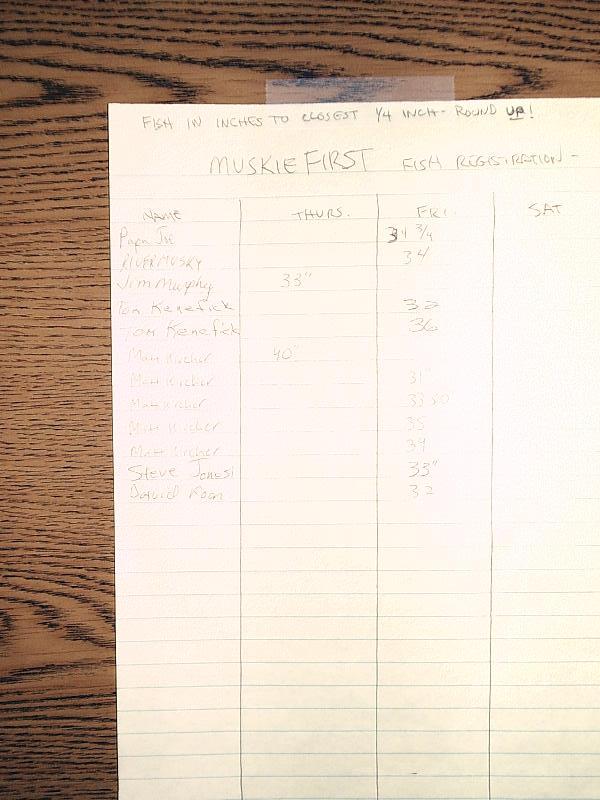 FISH IN INCHES TO CLOSEST 1/4 INCH - ROUND UP!
MUSKIE FIRST FISH REGISTRATION -
NAME THURS. FRI. SAT
Papa Joe 34 3/4
RIVERMUSKY 34
Jim Murphy 33"
Tom Kenefick 32
Tom Kenefick 36
Matt Kircher 40"
Matt Kircher 31"
Matt Kircher 33.50
Matt Kircher 35
Matt Kircher 34
Steve Jonesi 33"
David Roan 32